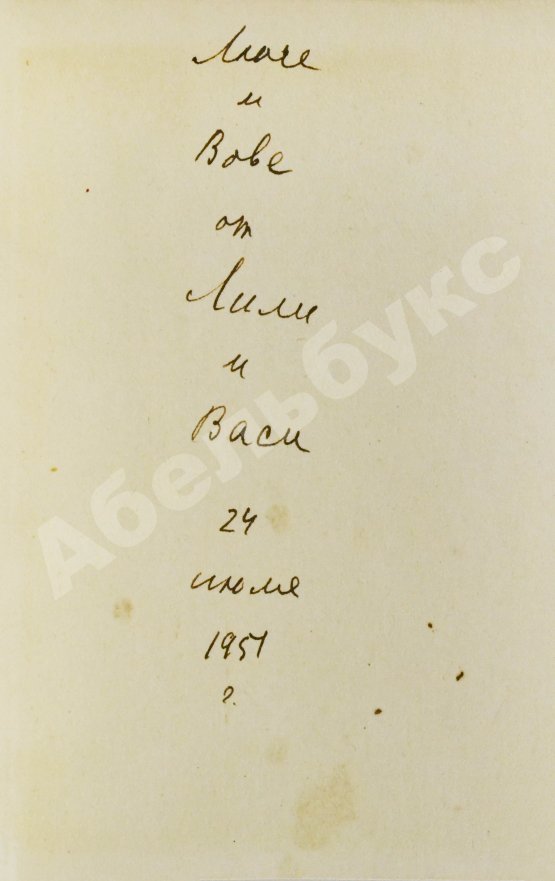 Люче
и
Вове
от
Лили
и
Васи
24
июля
1951
г.
Абельбукс